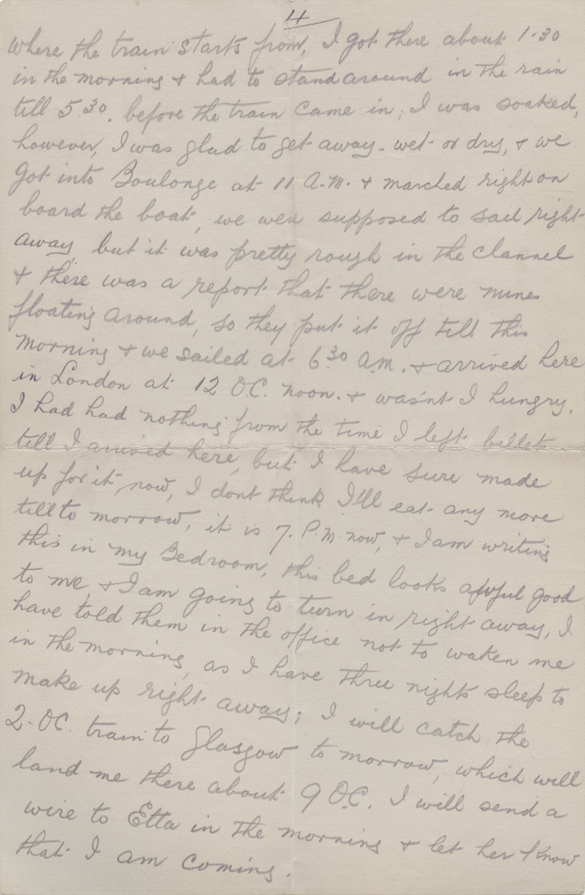 4
where the train starts from, I got there about 1.30
in the morning & had to stand around in the rain
till 5.30. before the train came in; I was soaked,
however, I was glad to get away. wet or dry, & we
got into Boulonge at 11 A.M. & marched right on
board the boat, we were supposed to sail right
away but it was pretty rough in the channel
& there was a report that there were mines
floating around, so they put it off till this
morning & we sailed at 6.30 A.M. & arrived here
in London at 12 O.C. noon. & wasn't I hungry.
I had had nothing from the time I left billet
till I arrived here, but I have sure made
up for it now, I dont think I'll eat any more
till to morrow, it is 7. P.M. now, & I am writing
this in my Bedroom, this bed looks awful good
to me, & I am going to turn in right away, I
have told them in the office not to waken me
in the morning, as I have three nights sleep to
make up right away; I will catch the
2. OC. train to Glasgow to morrow, which will
land me there about 9 O.C. I will send a
wire to Etta in the morning & let her know
that I am coming.